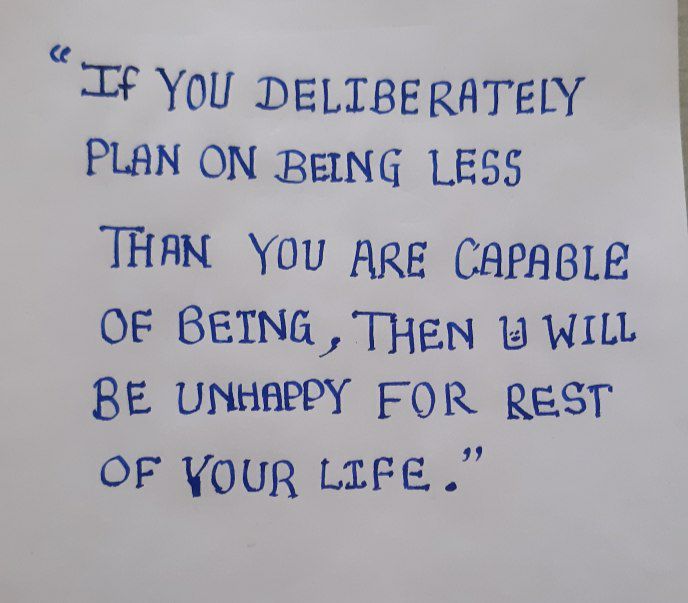 “If YOU DELIBERATELY
PLAN ON BEING LESS
THAN YOU ARE CAPABLE
OF BEING, THEN U WILL
BE UNHAPPY FOR REST
OF YOUR LIFE.”